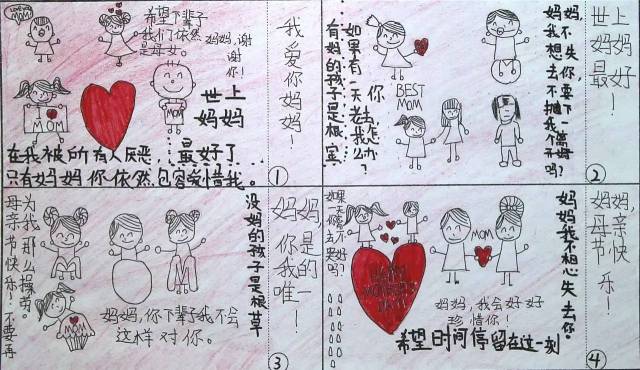 LOVE YOU MOM!
希望下辈子
我们依然
是母女。
妈妈,谢
谢
你!
I MOM
MOM
世上
妈妈
最好了
在我被所有人厌恶,
只有妈妈你依然包容爱惜我。
我爱你妈妈!
①
有妈的孩子是根
如果有一天你老去我怎么办?
BEST
MOM
妈妈,
我不想失去你,
世上
妈妈
最好!
②
母亲节快乐!不要再
为我那么操劳。
MOM
妈妈,你下辈子我不会
这样对你。
没妈的孩子是根草
妈妈,
你是
我的
唯一!
③
HAPPY
MOTHER'S
DAY!
MOM
妈妈,我会好好
珍惜你!
希望时间停留在这一刻
妈妈我不想失去你。
妈妈,
母亲
节快
乐!
④